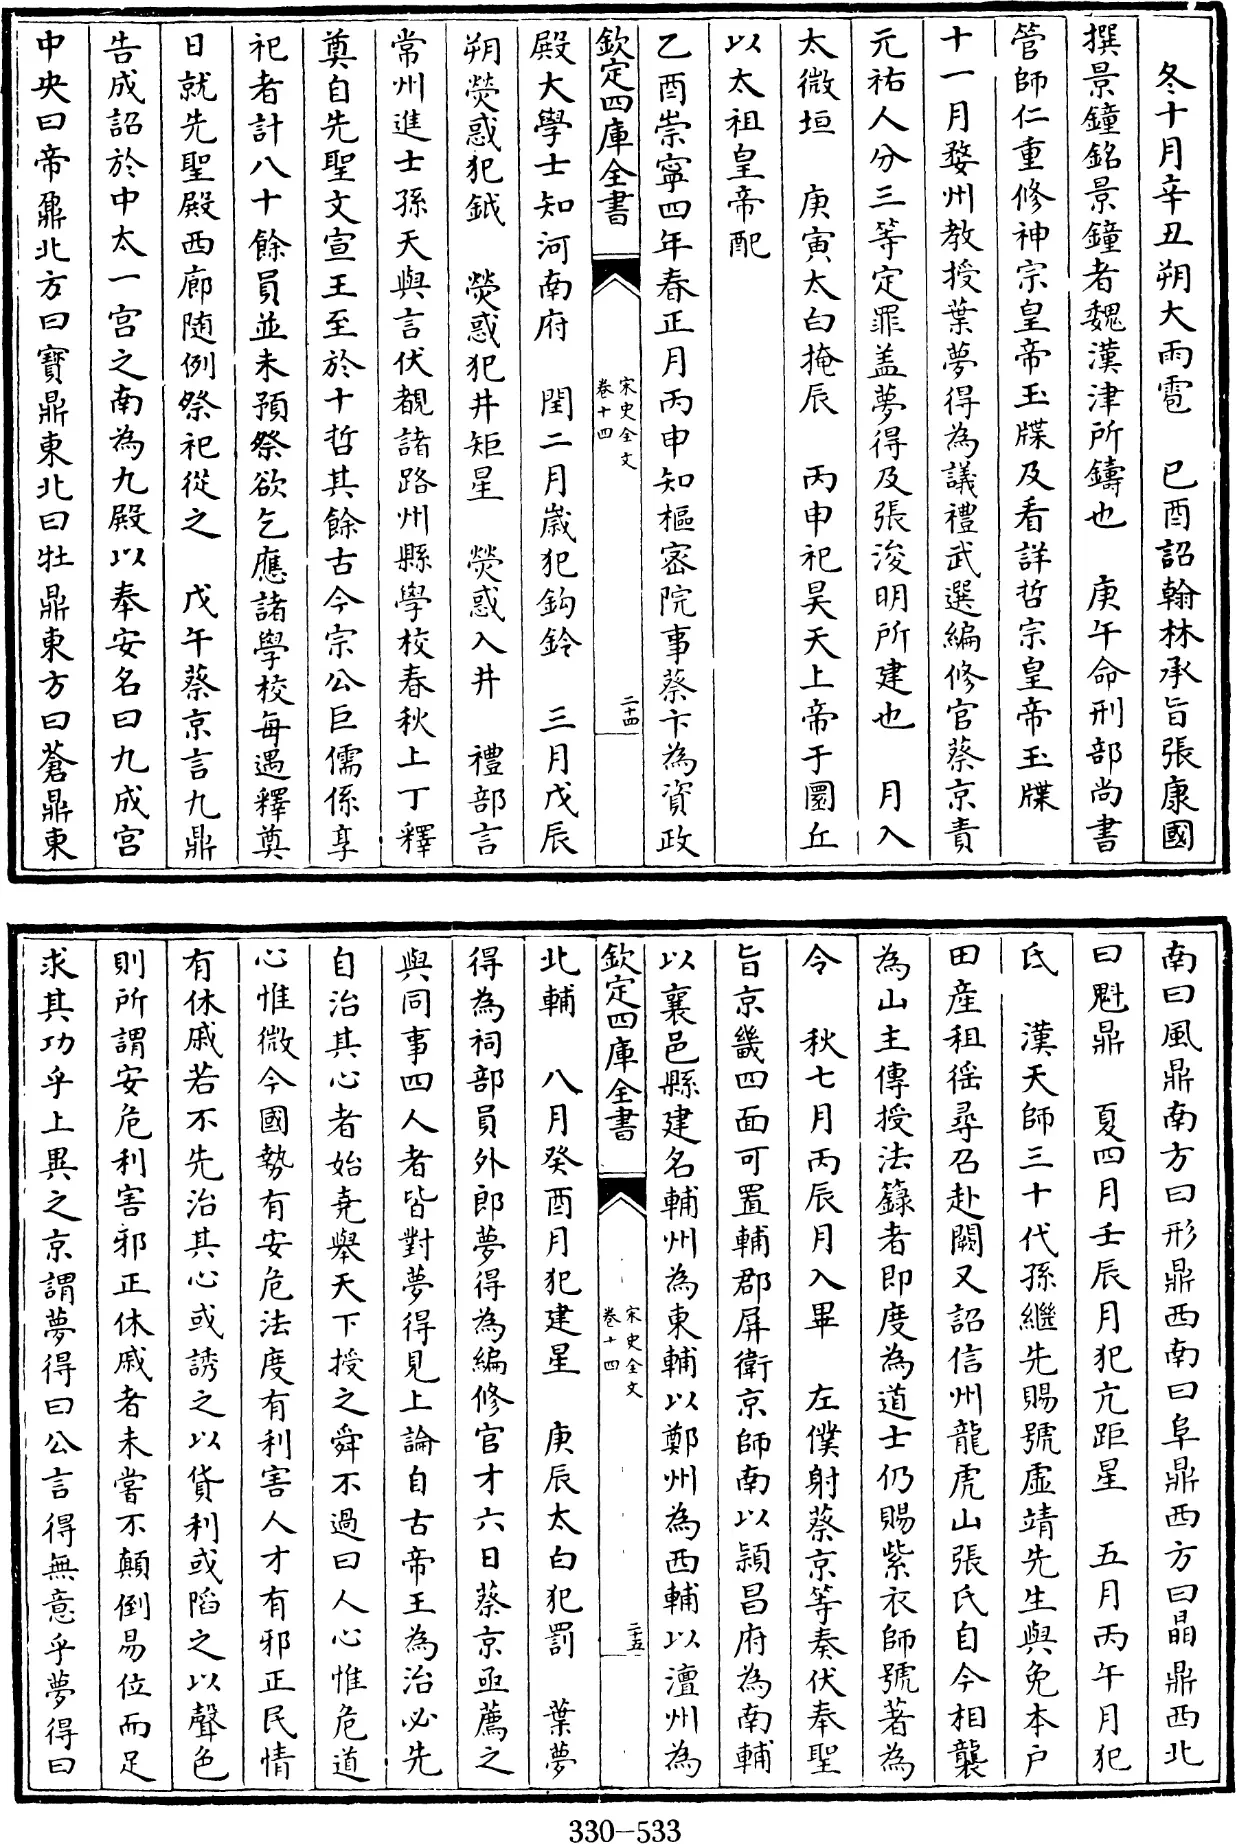 冬十月辛丑朔大雨雹　己酉詔翰林承旨張康國
撰景鐘銘景鐘者魏漢津所鑄也　庚午命刑部尚書
管師仁重修神宗皇帝玉牒及看詳哲宗皇帝玉牒
十一月婺州教授葉夢得為議禮武選編修官蔡京責
元祐人分三等定罪盖夢得及張浚明所建也　月入
太微垣　庚寅太白掩辰　丙申祀昊天上帝于圜丘
以太祖皇帝配
乙酉崇寧四年春正月丙申知樞宻院事蔡卞為資政
欽定四庫全書
宋史全文
卷十四
二十四
殿大學士知河南府　閏二月嵗犯鈎鈐　三月戊辰
朔熒惑犯鉞　熒惑犯井矩星　熒惑入井　禮部言
常州進士孫天與言伏覩諸路州縣學校春秋上丁釋
奠自先聖文宣王至於十哲其餘古今宗公巨儒係享
祀者計八十餘員並未預祭欲乞應諸學校每遇釋奠
日就先聖殿西廊随例祭祀從之　戊午蔡京言九鼎
告成詔於中太一宫之南為九殿以奉安名曰九成宫
中央曰帝鼐北方曰寳鼎東北曰牡鼎東方曰蒼鼎東
南曰風鼎南方曰彤鼎西南曰阜鼎西方曰晶鼎西北
曰魁鼎　夏四月壬辰月犯亢距星　五月丙午月犯
氐　漢天師三十代孫繼先賜號虚靖先生與免本户
田産租徭尋召赴闕又詔信州龍虎山張氏自今相襲
為山主傳授法籙者即度為道士仍賜紫衣師號著為
令　秋七月丙辰月入畢　左僕射蔡京等奏伏奉聖
旨京畿四面可置輔郡屏衛京師南以潁昌府為南輔
以襄邑縣建名輔州為東輔以鄭州為西輔以澶州為
欽定四庫全書
宋史全文
卷十四
二十五
北輔　八月癸酉月犯建星　庚辰太白犯罰　葉夢
得為祠部員外郎夢得為編修官才六日蔡京亟薦之
與同事四人者皆對夢得見上論自古帝王為治必先
自治其心者始堯舉天下授之舜不過曰人心惟危道
心惟微今國勢有安危法度有利害人才有邪正民情
有休戚若不先治其心或誘之以貨利或陷之以聲色
則所謂安危利害邪正休戚者未嘗不顛倒易位而足
求其功乎上異之京謂夢得曰公言得無意乎夢得曰
330-533